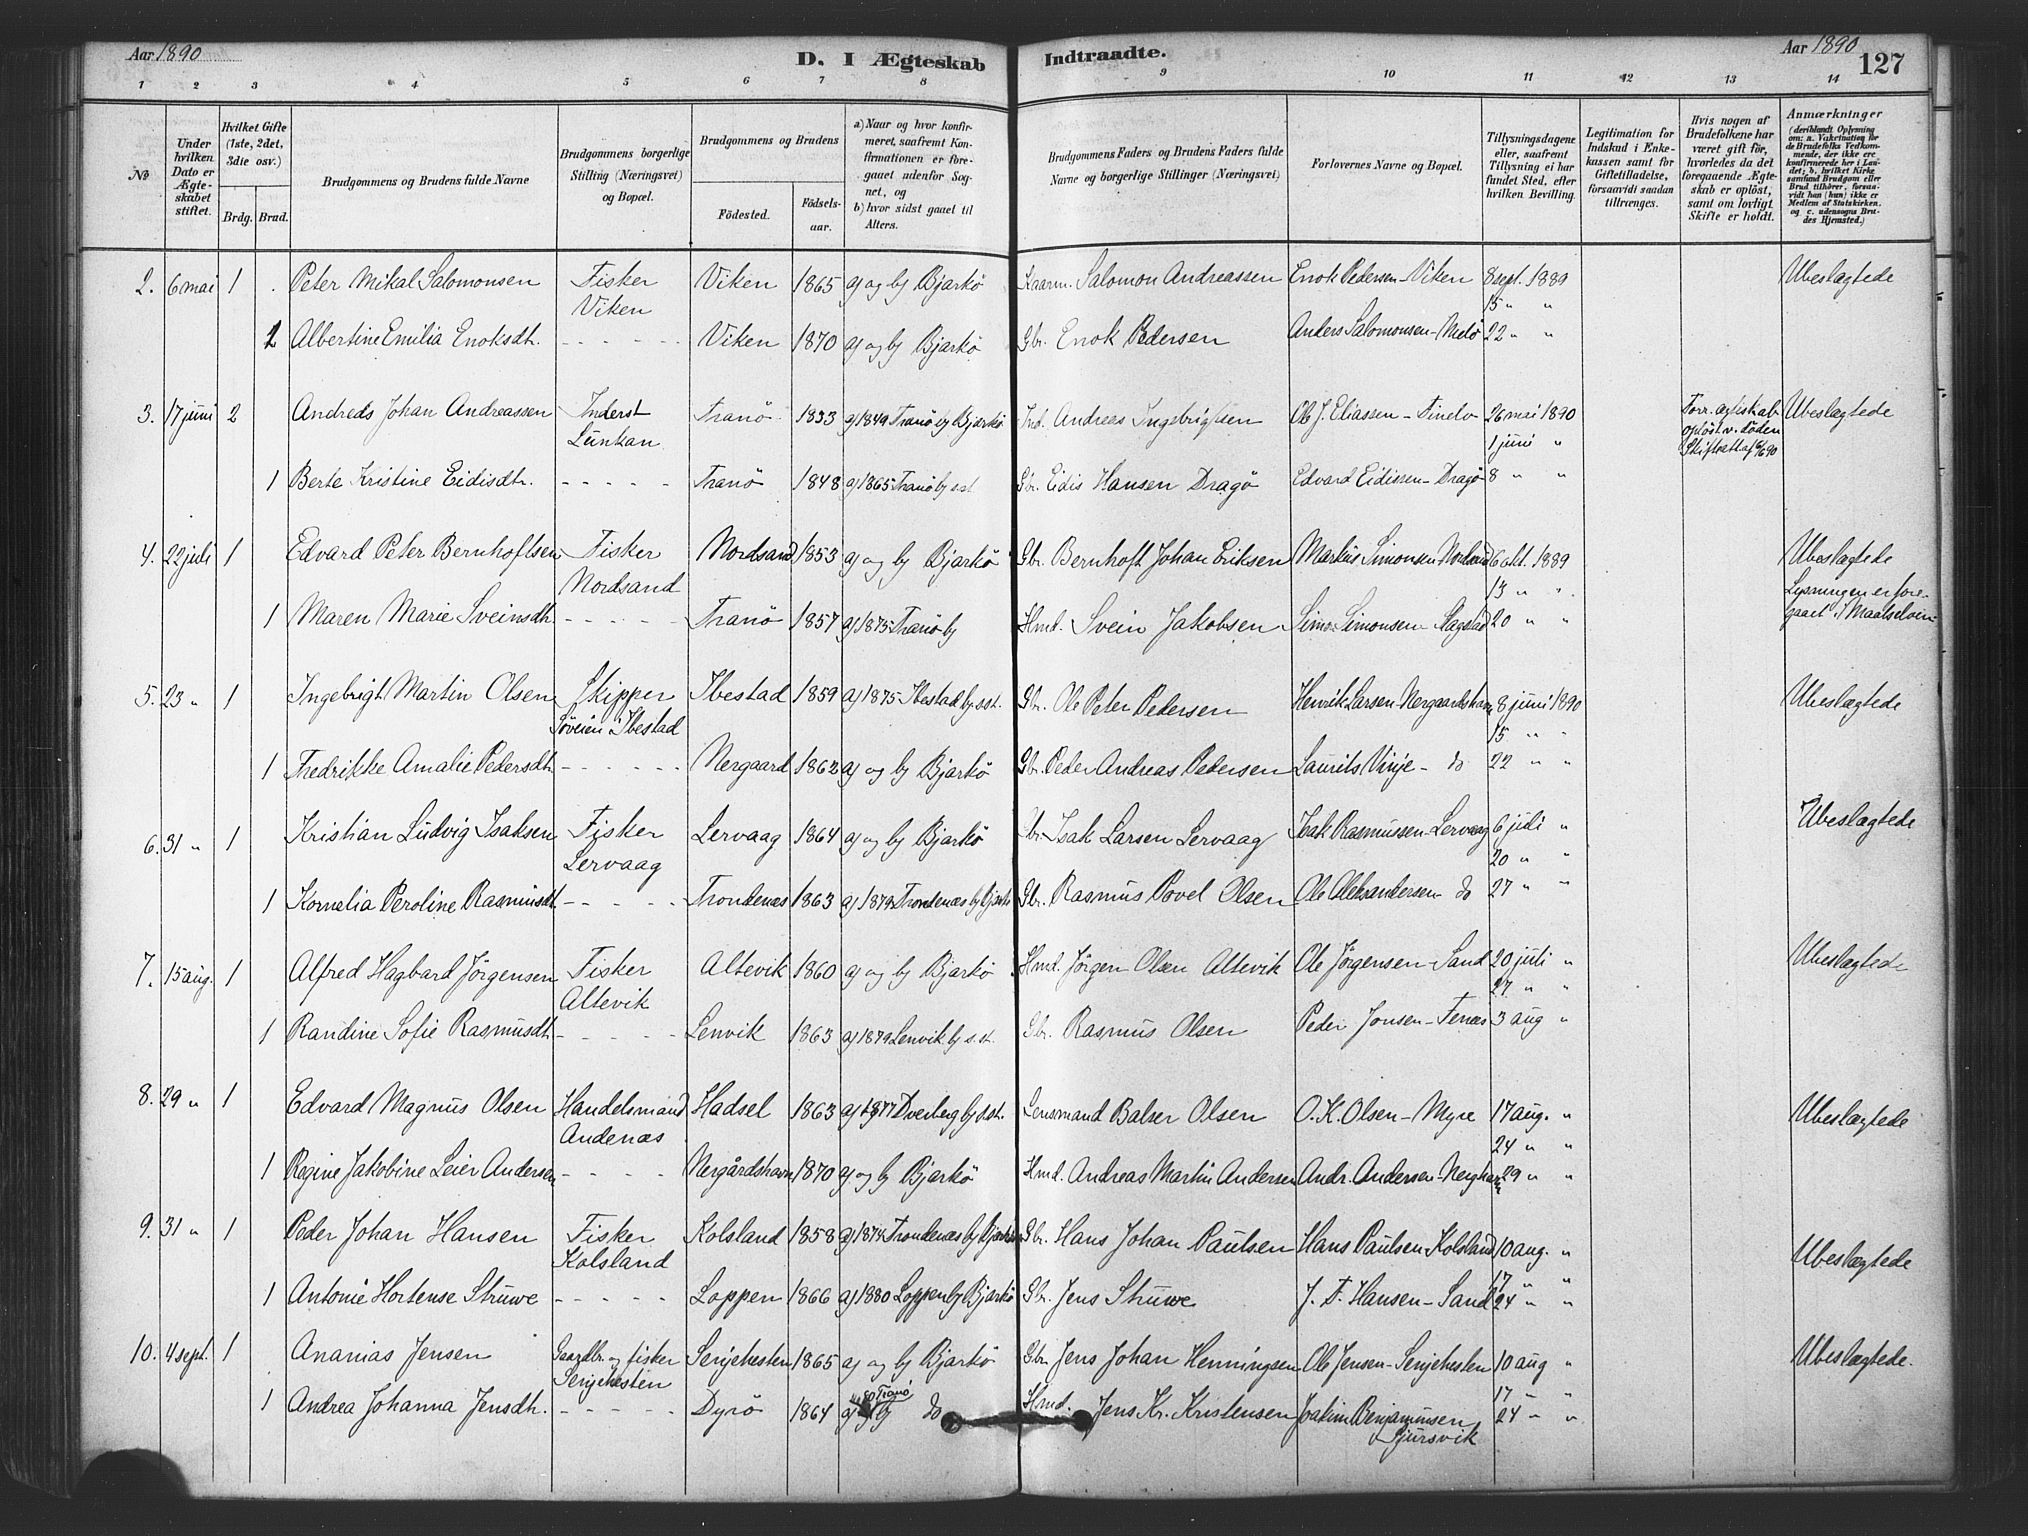 Aar 1890
D. I Ægteskab Indtraadte.
Aar 1890
127
1 2 3 4 5 6 7 8 9 10 11 12 13 14
No
Under hvilken Dato er Ægteskabet stiftet.
Hvilket Gifte (1ste, 2det, 3die osv.)
Brdg. Brud.
Brudgommens og Brudens fulde Navne
Brudgommens borgerlige Stilling (Næringsvei) og Bopæl.
Brudgommens og Brudens
Födested. Födselsaar.
a) Naar og hvor konfirmeret, saafremt Konfirmationen er foregaaet udenfor Sognet, og
b) hvor sidst gaaet til Alters.
Brudgommens Faders og Brudens Faders fulde Navne og borgerlige Stillinger (Næringsvei)
Forlovernes Navne og Bopæl.
Tillysningsdagene eller, saafremt Tillysning ei har fundet Sted, efter hvilken Bevilling.
Legitimation for Indskud i Enkekassen samt for Giftetilladelse, forsaavidt saadan tiltrænges.
Hvis nogen af Brudefolkene har været gift för, hvorledes da det foregaaende Ægteskab er oplöst, samt om lovligt Skifte er holdt.
Anmærkninger
(deriblandt Oplysning om: a. Vakcination for de Brudefolks Vedkommende, der ikke ere konfirmerede her i Landet; b. hvilket Kirkesamfund Brudgom eller Brud tilhörer, forsaavidt han (hun) ikke er Medlem af Statskirken, og c. udensogns Brudes Hjemsted.)
2. 6 mai 1 Peter Mikal Salomonsen Fisker Viken 1865 a) og b) Bjarkö Kaarm. Salomon Andreassen Enok Pedersen - Viken 8 sept. 1889 Ubeslægtede
Viken 15 " "
1 Albertine Emilia Enoksdtr. - - - - - Viken 1870 a) og b) Bjarkö Gbr. Enok Pedersen Anders Salomonsen - Melö 22 " "
3. 17 juni 2 Andreas Johan Andreassen Inderst Tranö 1833 a) 1849 Tranö b) Bjarkö Ind. Andreas Ingebrigtsen Ole J. Eliassen - Finelv 26 mai 1890 Forr. ægteskab Ubeslægtede
Lünkan 1 juni " oplöst v. döden
Skifteatt. af
1 Berte Kristine Eidisdtr. - - - - - Tranö 1848 a) 1865 Tranö b) s. st. Gbr. Eidis Hansen Dragö Edvard Eidissen - Dragö 8 " "
4. 22 juli 1 Edvard Peter Bernhoftsen Fisker Nordsand 1853 a) og b) Bjarkö Gbr. Bernhoft Johan Eriksen Markus Simonsen Nordsand 6 okt. 1889 Ubeslægtede
Nordsand 13 " " Lysningen er fore-
1 Maren Marie Sveinsdtr. - - - - Tranö 1857 a) 1875 Tranö b) Hmd. Svein Jakobsen Simon Simonsen - Slagstad 20 " " gaaet i Maalselven
5. 23 " 1 Ingebrigt Martin Olsen Skipper Ibestad 1859 a) 1875 Ibestad b) s. st. Gbr. Ole Peter Pedersen Henrik Larsen - Nergaardshavn 8 juni 1890 Ubeslægtede
Söveien i Ibestad 15 " "
1 Fredrikke Amalie Pedersdtr. - - - - - Nergaard 1862 a) og b) Bjarkö Gbr. Peder Andreas Pedersen Laurits Vinje - do 22 " "
6. 31 " 1 Kristian Ludvig Isaksen Fisker Lervaag 1864 a) og b) Bjarkö Gbr. Isak Larsen Lervaag Isak Rasmussen - Lervaag 6 juli " Ubeslægtede
Lervaag 20 " "
1 Kornelia Peroline Rasmusdtr. - - - - - Trondenæs 1863 a) 1879 Trondenæs b) Bjarkö Gbr. Rasmus Povel Olsen Ole Oleksandersen - do 27 " "
7. 15 aug. 1 Alfred Hagbard Jörgensen Fisker Altevik 1860 a) og b) Bjarkö Hmd. Jörgen Olsen Altevik Ole Jörgensen - Sand 20 juli " Ubeslægtede
Altevik 27 " "
1 Randine Sofie Rasmusdtr. - - - - - Lenvik 1863 a) 1879 Lenvik b) s. st. Gbr. Rasmus Olsen Peder Jonsen - Fenæs 3 aug "
8. 29 " 1 Edvard Magnus Olsen Handelsmand Hadsel 1863 a) 1877 Dverberg b) s. st. Lensmand Balser Olsen O. K. Olsen - Myre 17 aug. " Ubeslægtede
Andenæs 24 " "
1 Regine Jakobine Leier Andersen - - - - Nergårdshavn 1870 a) og b) Bjarkö Hmd. Andreas Martin Andersen Andr. Andersen - Nerghavn 29 " "
9. 31 " 1 Peder Johan Hansen Fisker Kolsland 1858 a) 1874 Trondenæs b) Bjarkö Gbr. Hans Johan Paulsen Hans Paulsen - Kolsland 10 aug. " Ubeslægtede
Kolsland 17 " "
1 Antonie Hortense Strüwe - - - - - Loppen 1866 a) 1880 Loppen b) Bjarkö Gbr. Jens Strüwe J. F. Hansen - Sand 24 " "
10. 4 sept. 1 Ananias Jensen Gaardbr. og fisker Senjehesten 1865 a) og b) Bjarkö Gbr. Jens Johan Henningsen Ole Jensen - Senjehesten 10 aug " Ubeslægtede.
Senjehesten 17 " "
1 Andrea Johanna Jensdtr. - - - - - Dyrö 1864 a) Tranö b) do Hmd. Jens Kr. Kristensen Joakim Benjaminsen 24 " "
Sjursvik